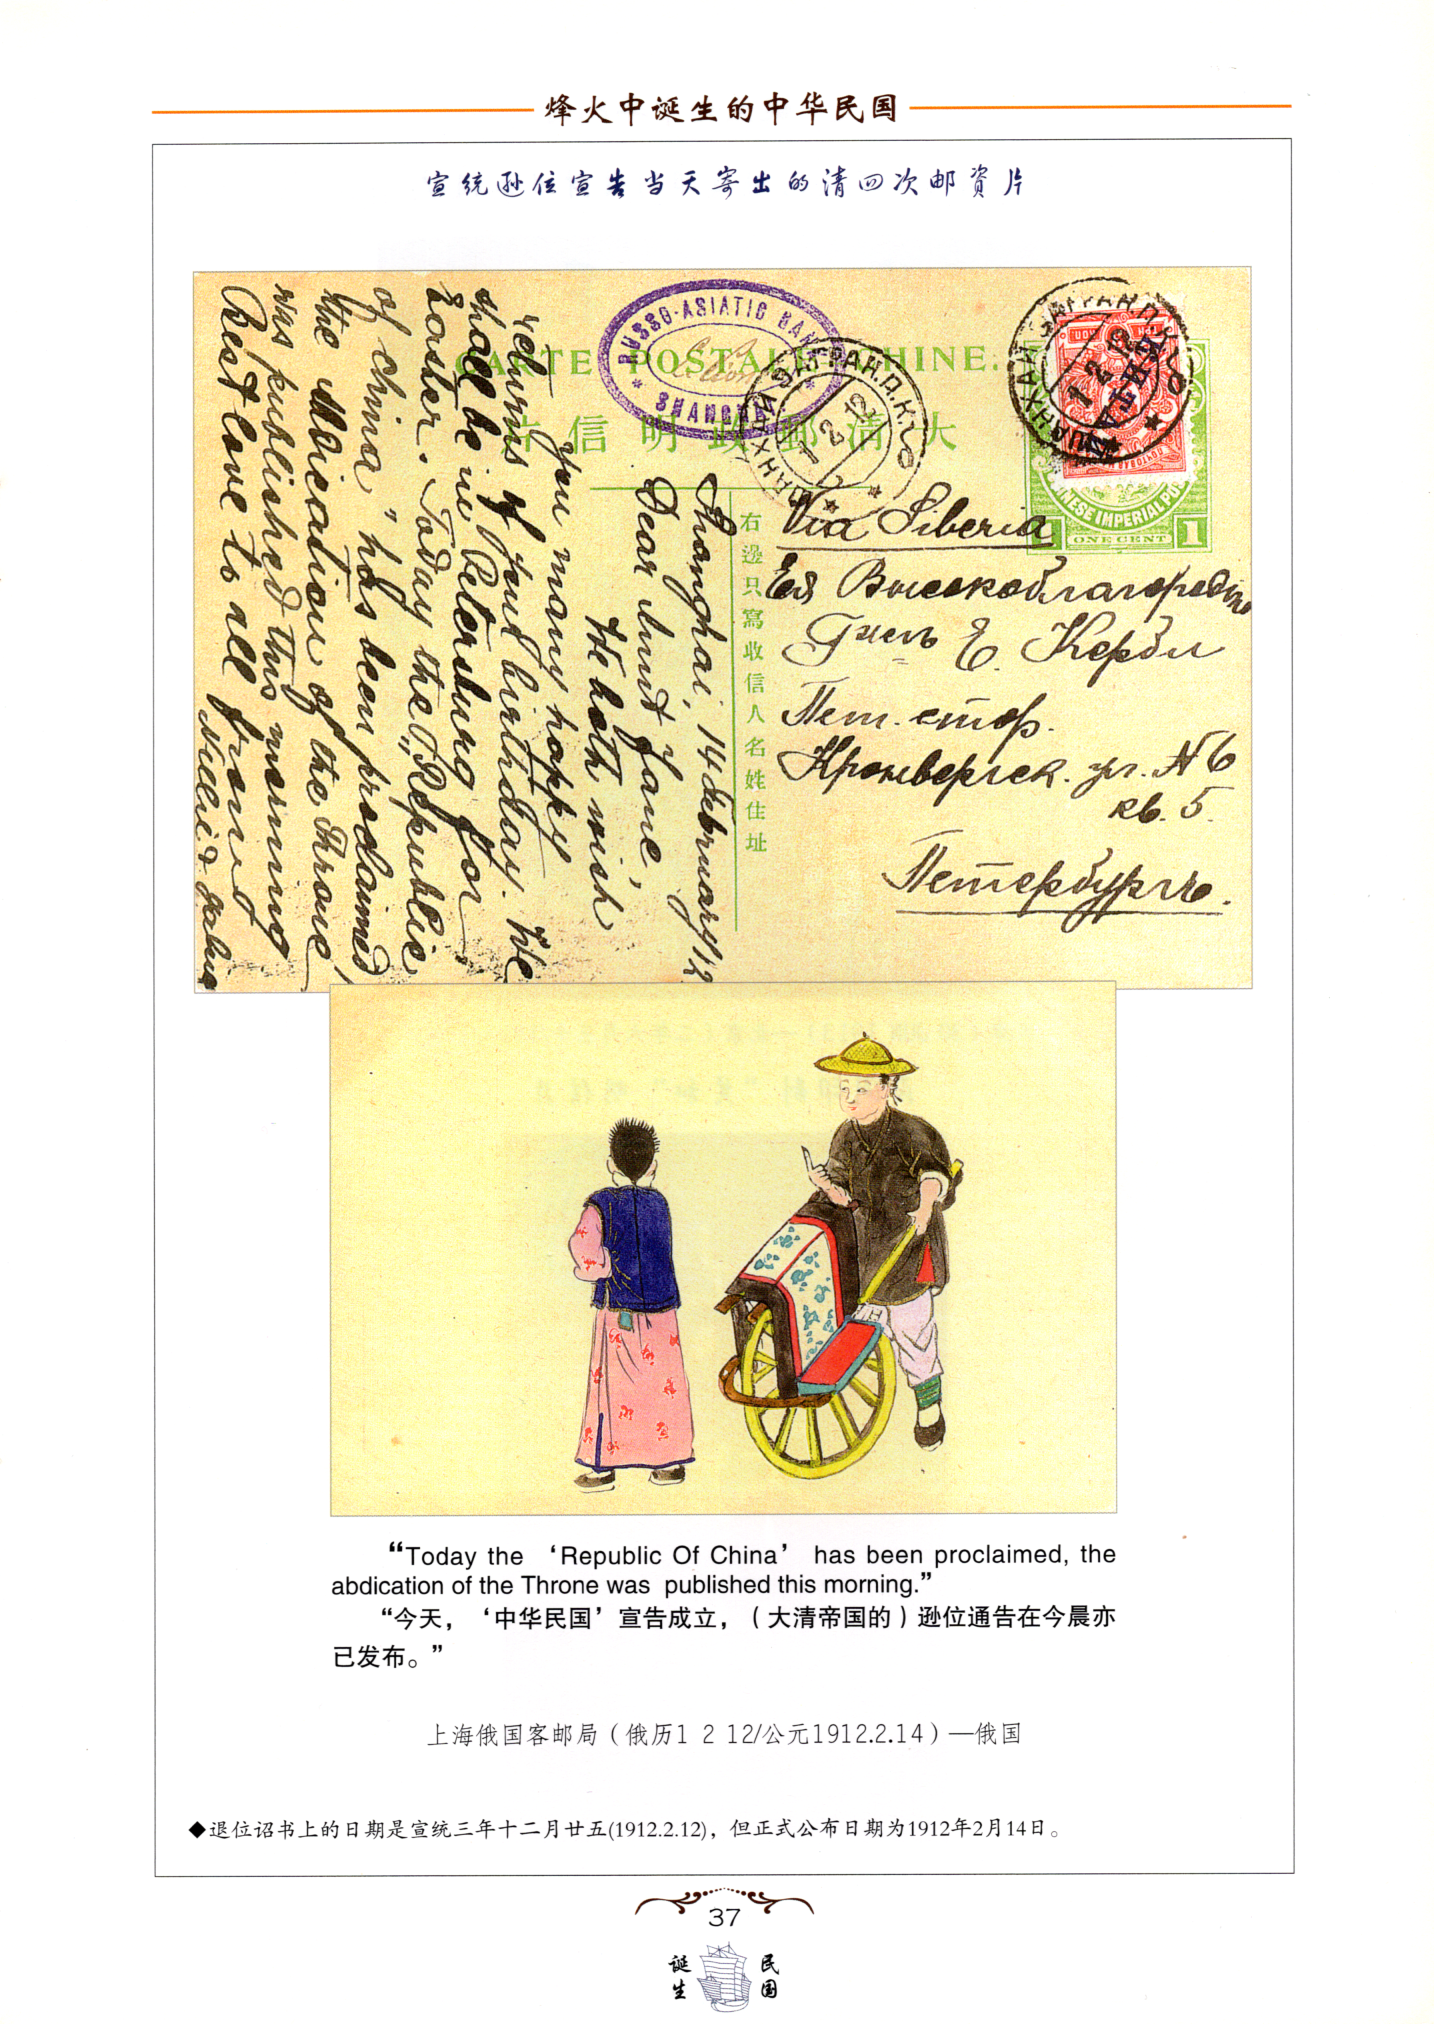 烽火中诞生的中华民国
宣统逊位宣告当天寄出的清四次邮资片
CARTE POSTALE CHINE.
大清郵政明信片
RUSSO-ASIATIC BANK
SHANGHAI
ШАНХАЙ ЗАГРАН.П.К.
1 2 12
ШАНХАЙ ЗАГРАН.П.К.
1 2 12
КИТАЙ
CHINESE IMPERIAL POST
1 ONE CENT 1
右邊只寫收信人名姓住址
Via Siberia
Ея Высокоблагородію
Е. Керби
Пет. стор.
Кронверкск. ул. № 6
кв. 5.
Петербургъ.
Shanghai, 14 February/12
Dear Aunt Jane,
We both wish
you many happy
returns of your birthday. We
shall be in Petersburg for
Easter. Today the "Republic
of China" has been proclaimed
the Abdication of the Throne
was published this morning
Best love to all from
Nellie &
“Today the ‘Republic Of China’ has been proclaimed, the
abdication of the Throne was published this morning.”
“今天，‘中华民国’宣告成立，（大清帝国的）逊位通告在今晨亦
已发布。”
上海俄国客邮局（俄历1 2 12/公元1912.2.14）—俄国
◆退位诏书上的日期是宣统三年十二月廿五(1912.2.12)，但正式公布日期为1912年2月14日。
37
诞生
民国